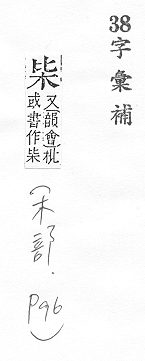 38
字彙補
枈
又韻會枇
或書作枈
(木部.
P96)